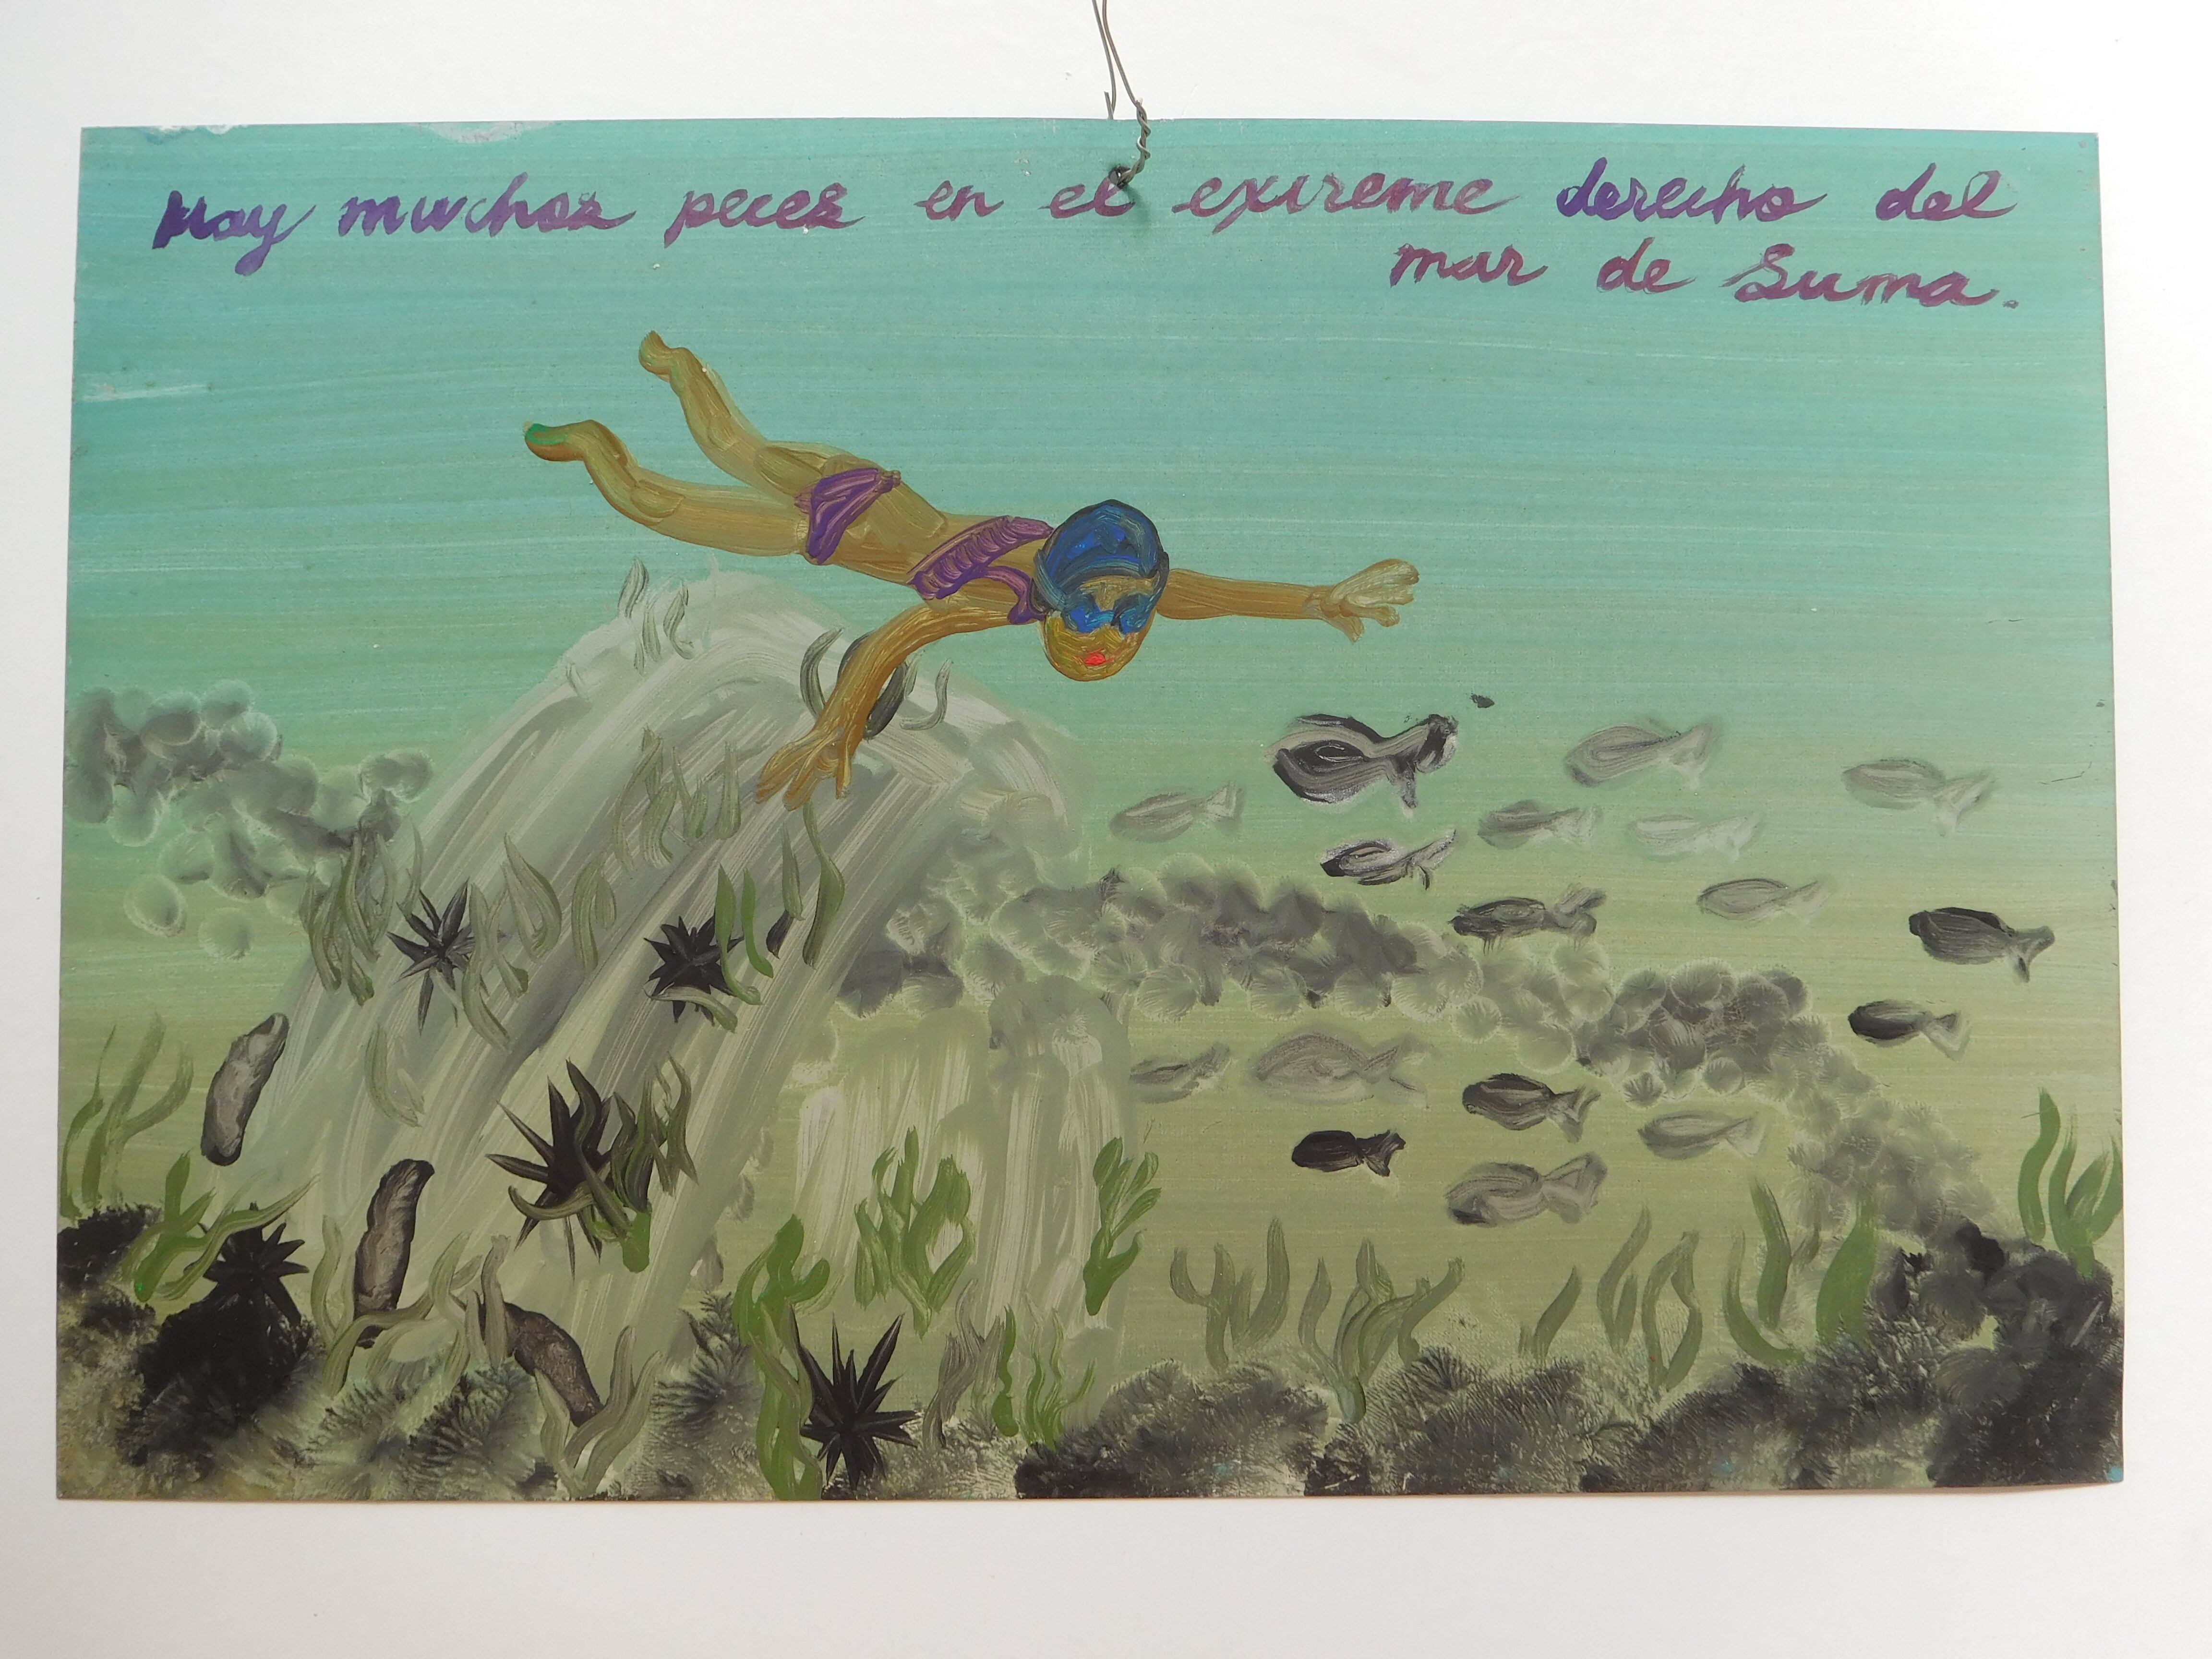 Hay muchos peces en el extreme derecho del
mar de Suma.